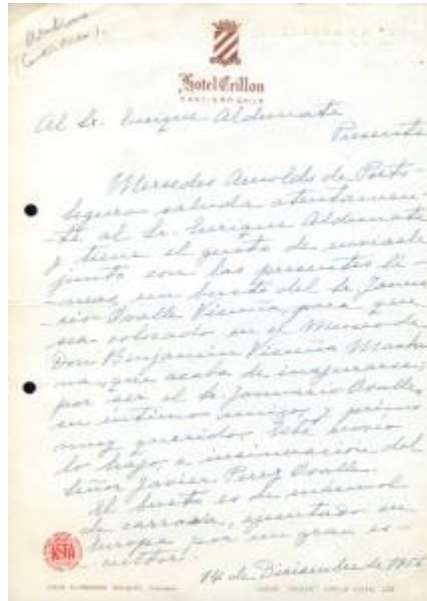 Archivo
Hotel Crillon
SANTIAGO-CHILE
Al Sr. Enrique Aldunate
Presente
Mersedes Arnolds de Porto-
Seguro saluda atentamen-
te al Sr. Enrique Aldunate
y tiene el gusto de enviarle
junto con las presentes lí-
neas, un busto del Sr Janua-
rio Ovalle Vicuña, para que
sea colocado en el Museo de
Don Benjamin Vicuña Macke
na, que acaba de inaugurarse,
por ser el Sr Januario Ovalle,
su intimo amigo y primo
muy querido. Este envio
lo hago a insinuación del
Señor Javier Perez Ovalle.
El busto es de mármol
de carrara, ejecutado en
Europa por un gran es-
cultor.
14 de Diciembre de 1956
ASTA